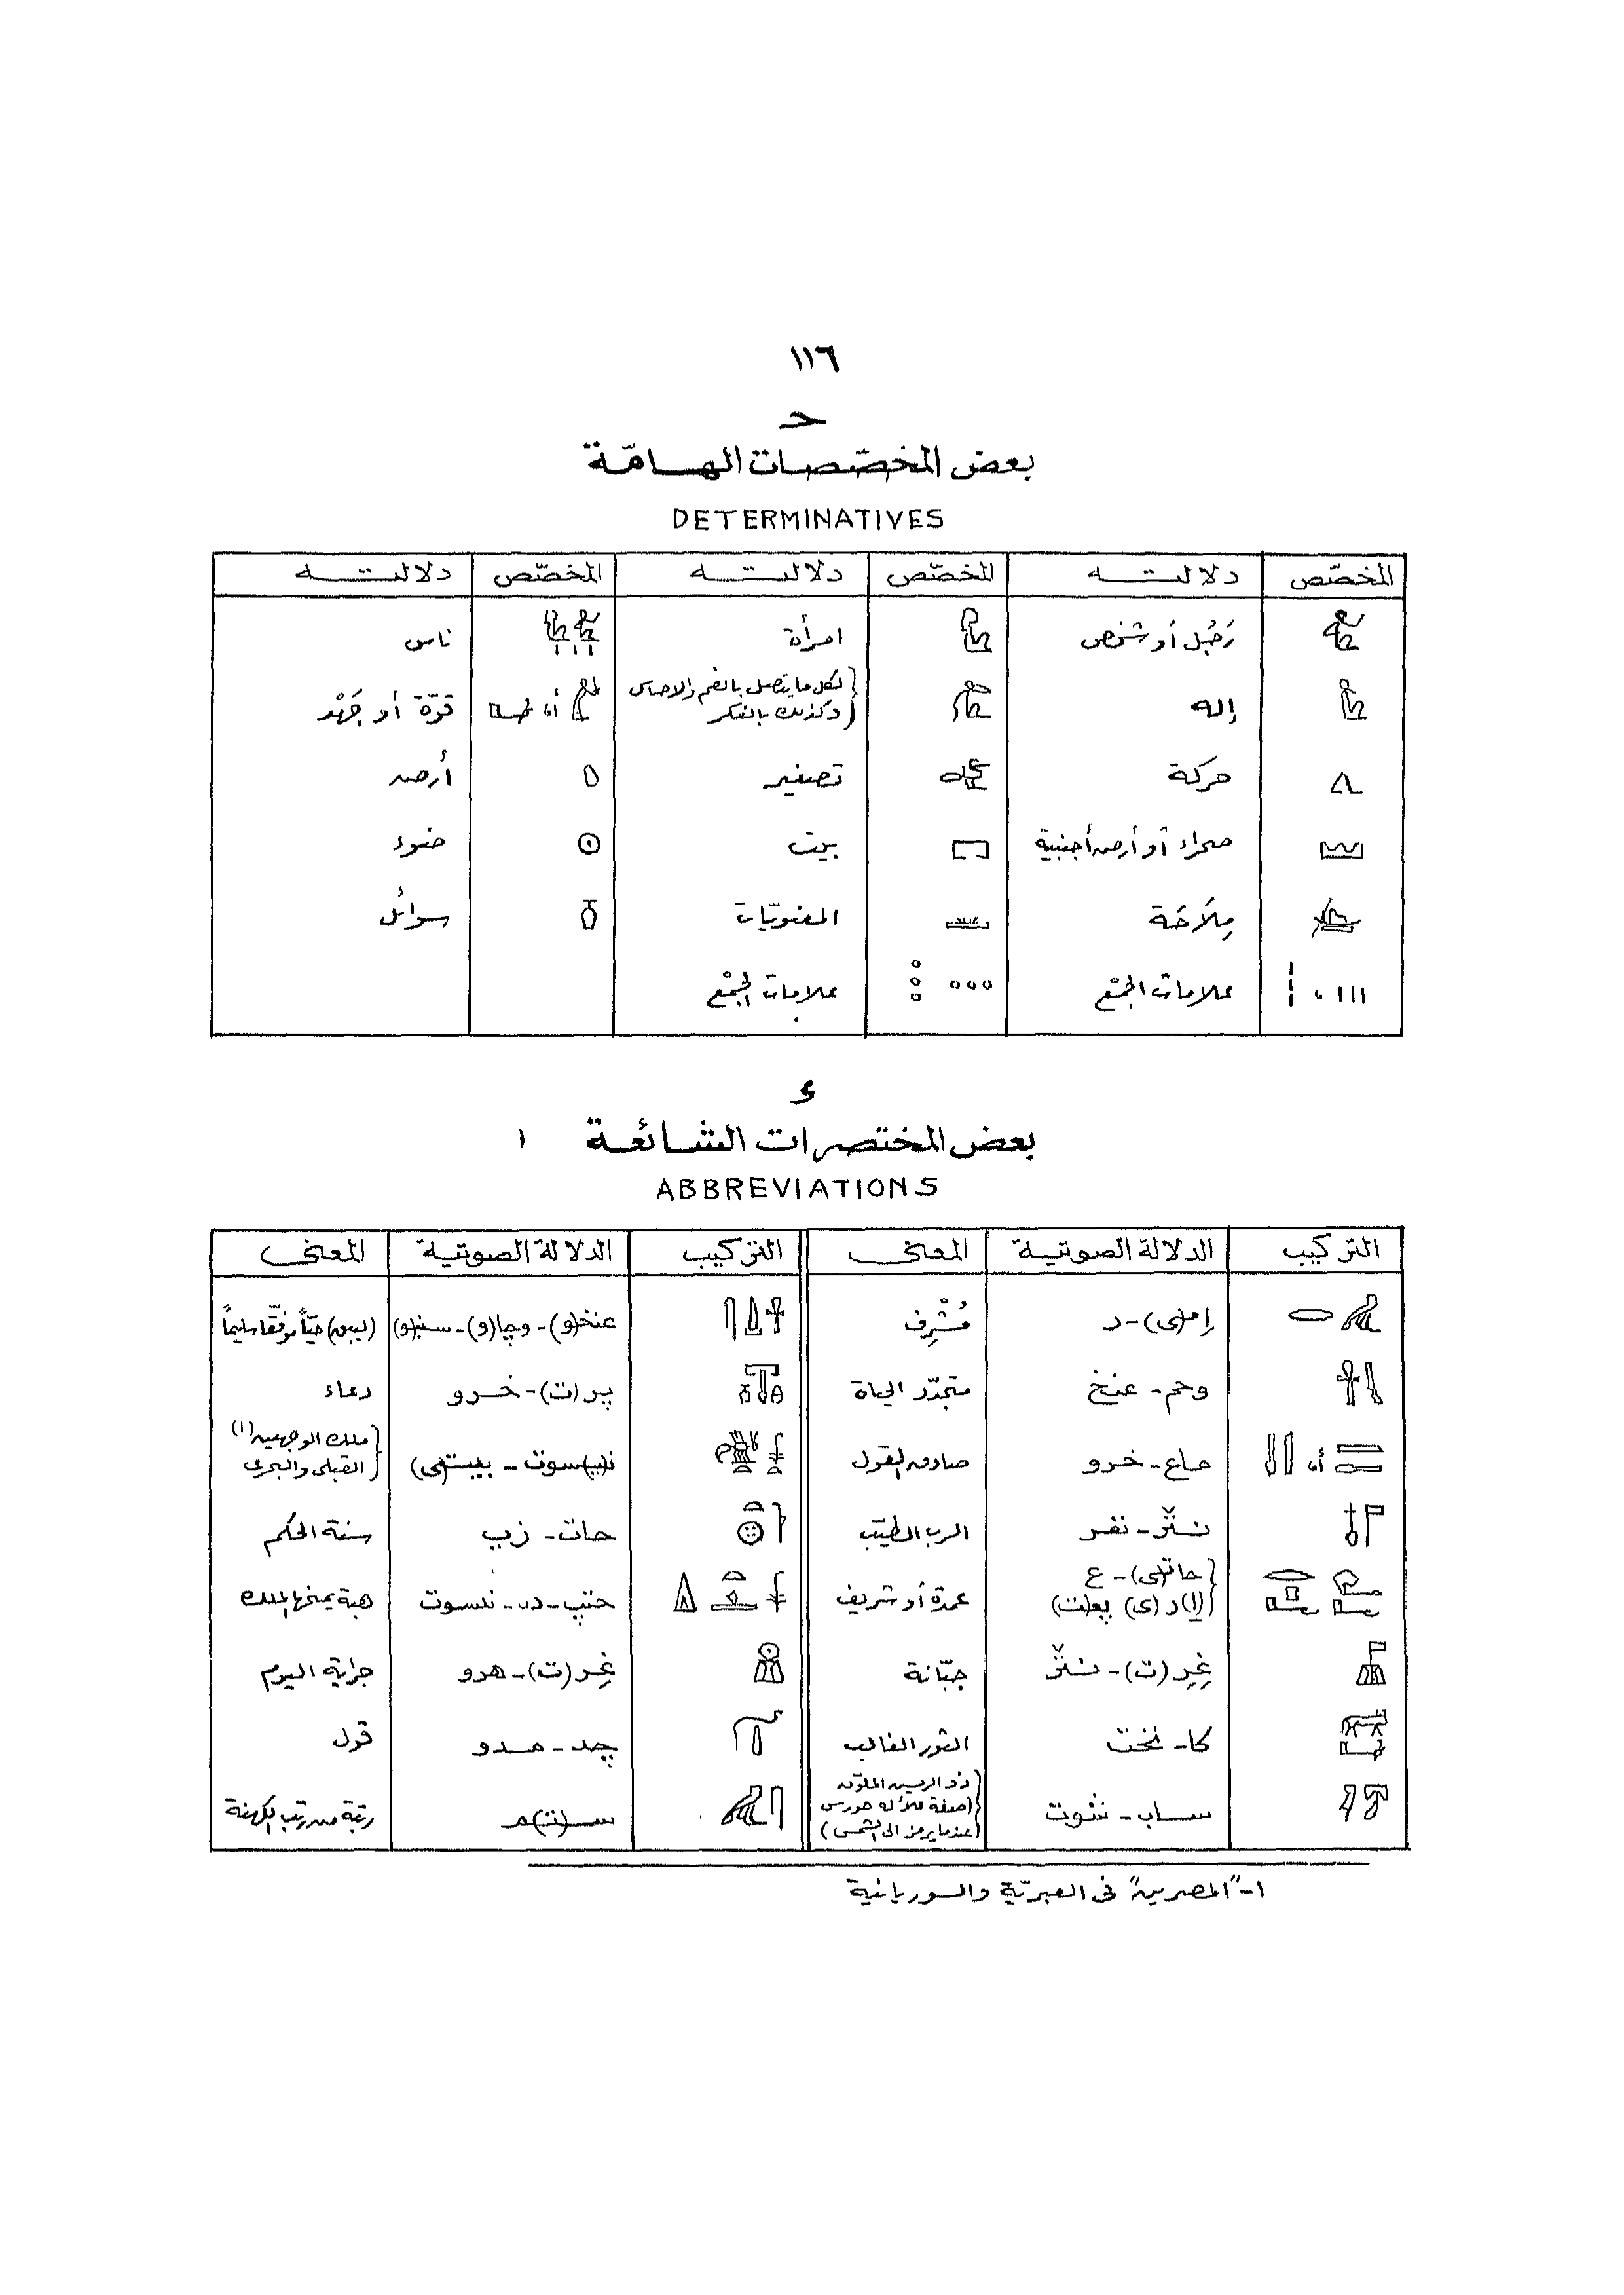 ١١٦
حـ
بعض المخصّصات الهـامّـة
DETERMINATIVES
المخصّص دلالتـه المخصّص دلالتـه المخصّص دلالتـه
رَجُل أو شخص امرأة ناس
إله لكل ما يتصل بالفم والاحساس وكذلك بالفكر أو قوّة أو جَهْد
حركة تصغير أرض
صحراء أو أرض أجنبية بيت ضوء
مِلَاحَة المعنويّات سوائل
علامات الجمْع علامات الجمْع
د
بعض المختصرات الشـائعـة ١
ABBREVIATIONS
التركيب الدلالة الصوتيـة المعنى التركيب الدلالة الصوتيـة المعنى
إم(ى)-ر مُشْرِف عنخ(و)-وچا(و)-سنب(و) (ليبق) حيّاً موفّقاً سليماً
وحم-عنخ متجدّد الحياة پر(ت)-خرو دعاء
أو ماع-خرو صادق القول ن(ى)سوت-بيت(ى) ملك الوجهين (١) القبلى والبحرى
نفر الرب الطيّب حات-زب سنة الحكم
حات(ى)-ع عمدة أو شريف حتپ-دى-نسوت هبة يمنحها الملك
(ا)ر(ى) پعت
غِر(ت)- جبّانة غِر(ت)-هرو جراية اليوم
كا-نخت الثور الغالب چد-مدو قول
ساب-شوت ذو الريش الملوّن (صفة للأله حورس عندما يرمز الى الشمس) س(ت)م رتبة من رتب الكهنة
١-"المصرية" فى العبريّة والسوريانية